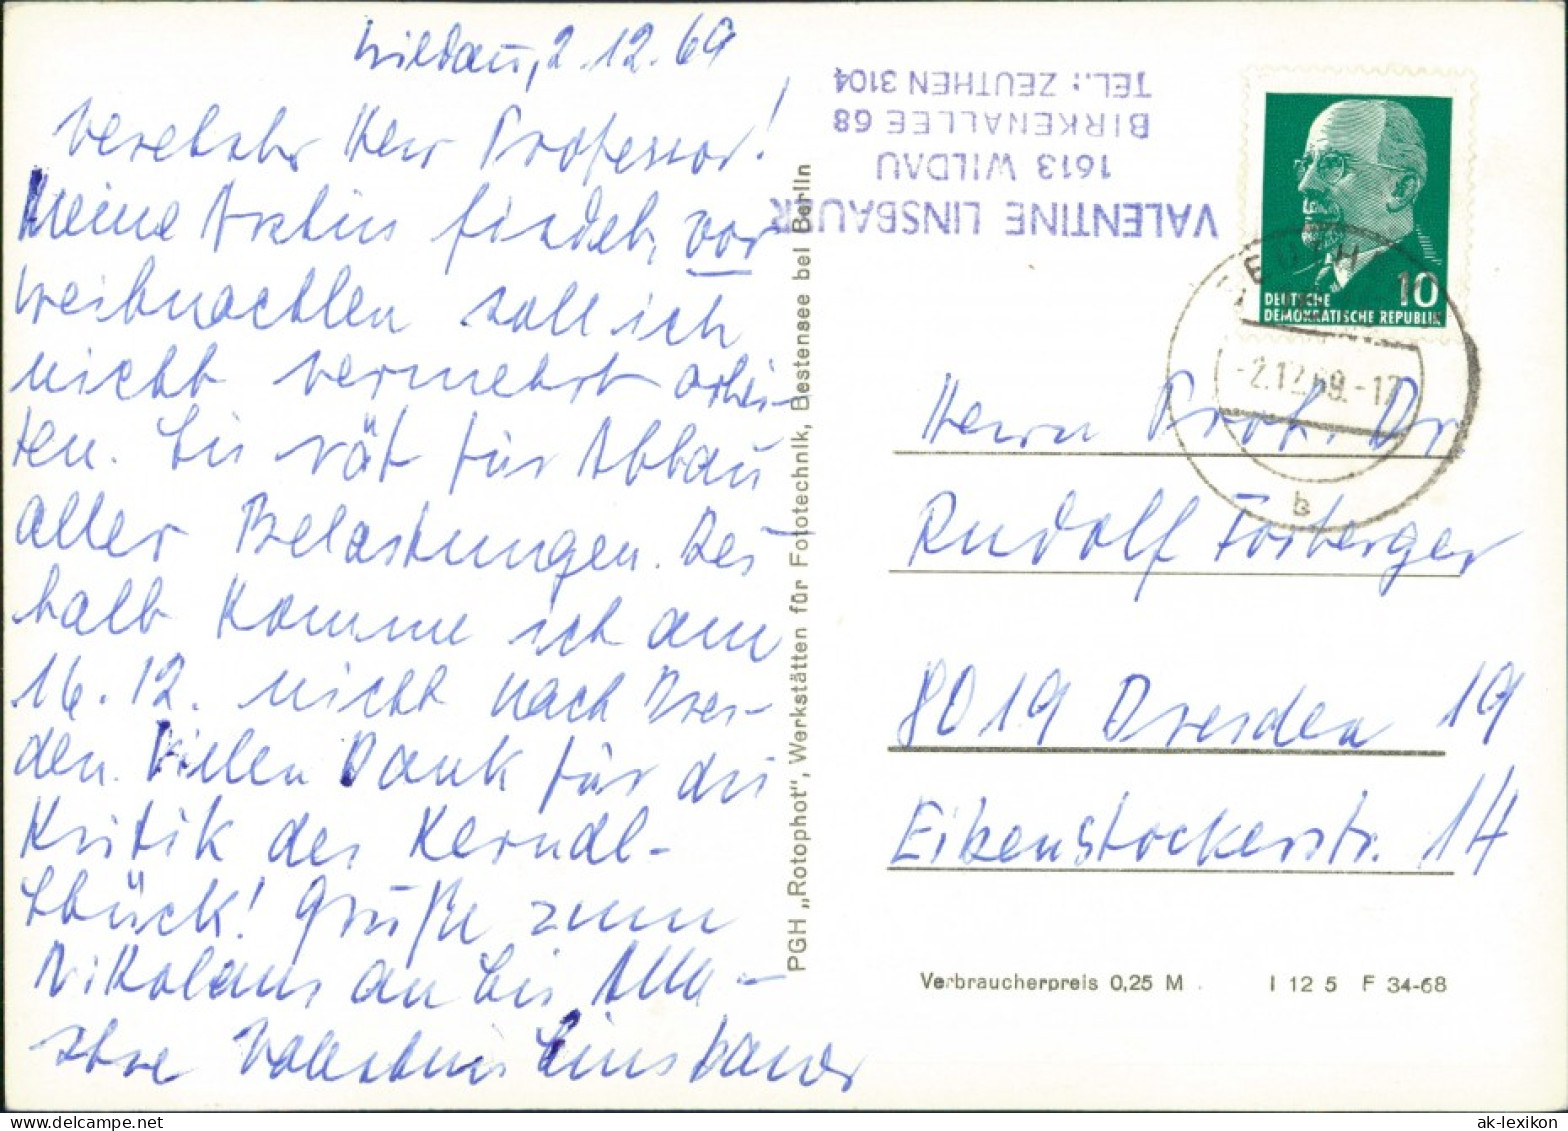 Wildau, 2.12.69
Verehrter Herr Professor!
Meine Ärztin findet, vor
Weihnachten soll ich
nicht vermehrt arbei-
ten. Sie rät für Abbau
aller Belastungen. Des
halb komme ich am
16.12. nicht nach Dres-
den. Vielen Dank für die
Kritik des
Grüße zum
Nikolaus an Sie, Alla -
Ihre Valentine Linsbauer
VALENTINE LINSBAUER
1613 WILDAU
BIRKENALLEE 68
TEL.: ZEUTHEN 3104
10
DEUTSCHE
DEMOKRATISCHE REPUBLIK
-2.12.69.-17
b
Herrn Prof. Dr.
Rudolf Forberger
8019 Dresden 19
Eibenstockerstr. 14
PGH „Rotophot", Werkstätten für Fototechnik, Bestensee bei Berlin
Verbraucherpreis 0,25 M
I 12 5 F 34-68
ak-lexikon